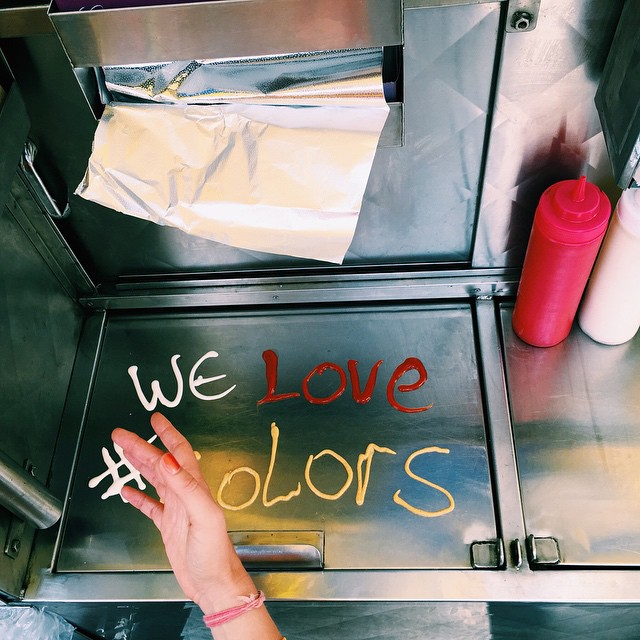 WE LOVE
#COLORS